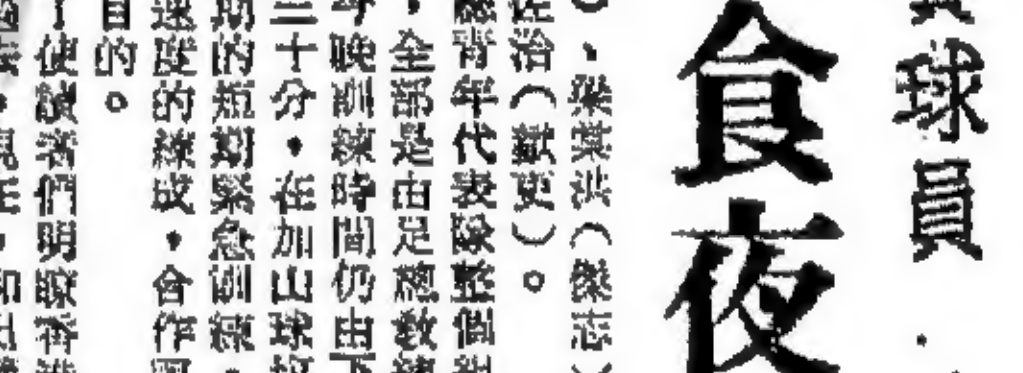 球員
食夜
、梁榮洪（傑志）
佐治（獻吏）。
青年代表隊整個
，全部是由足總教練
今晚訓練時間仍由下
三十分，在加山球場
期的短期緊急訓練，
速度的練成，合作
目的。
使讀者們明瞭香港
，現在，和